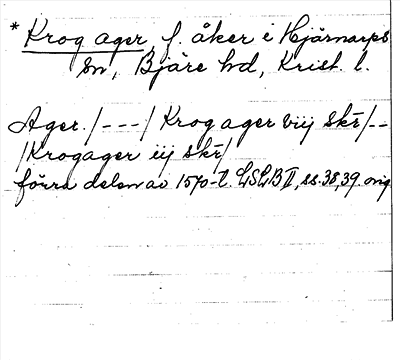 * Krog ager, f. åker i Hjärnarps
sn, Bjäre hd, Krist. l.
Ager. /---/ Krog ager viij skr̄ /--
/Krogager iij skr̄/
förra delen av 1570-t. LSLB II, ss. 38, 39. orig